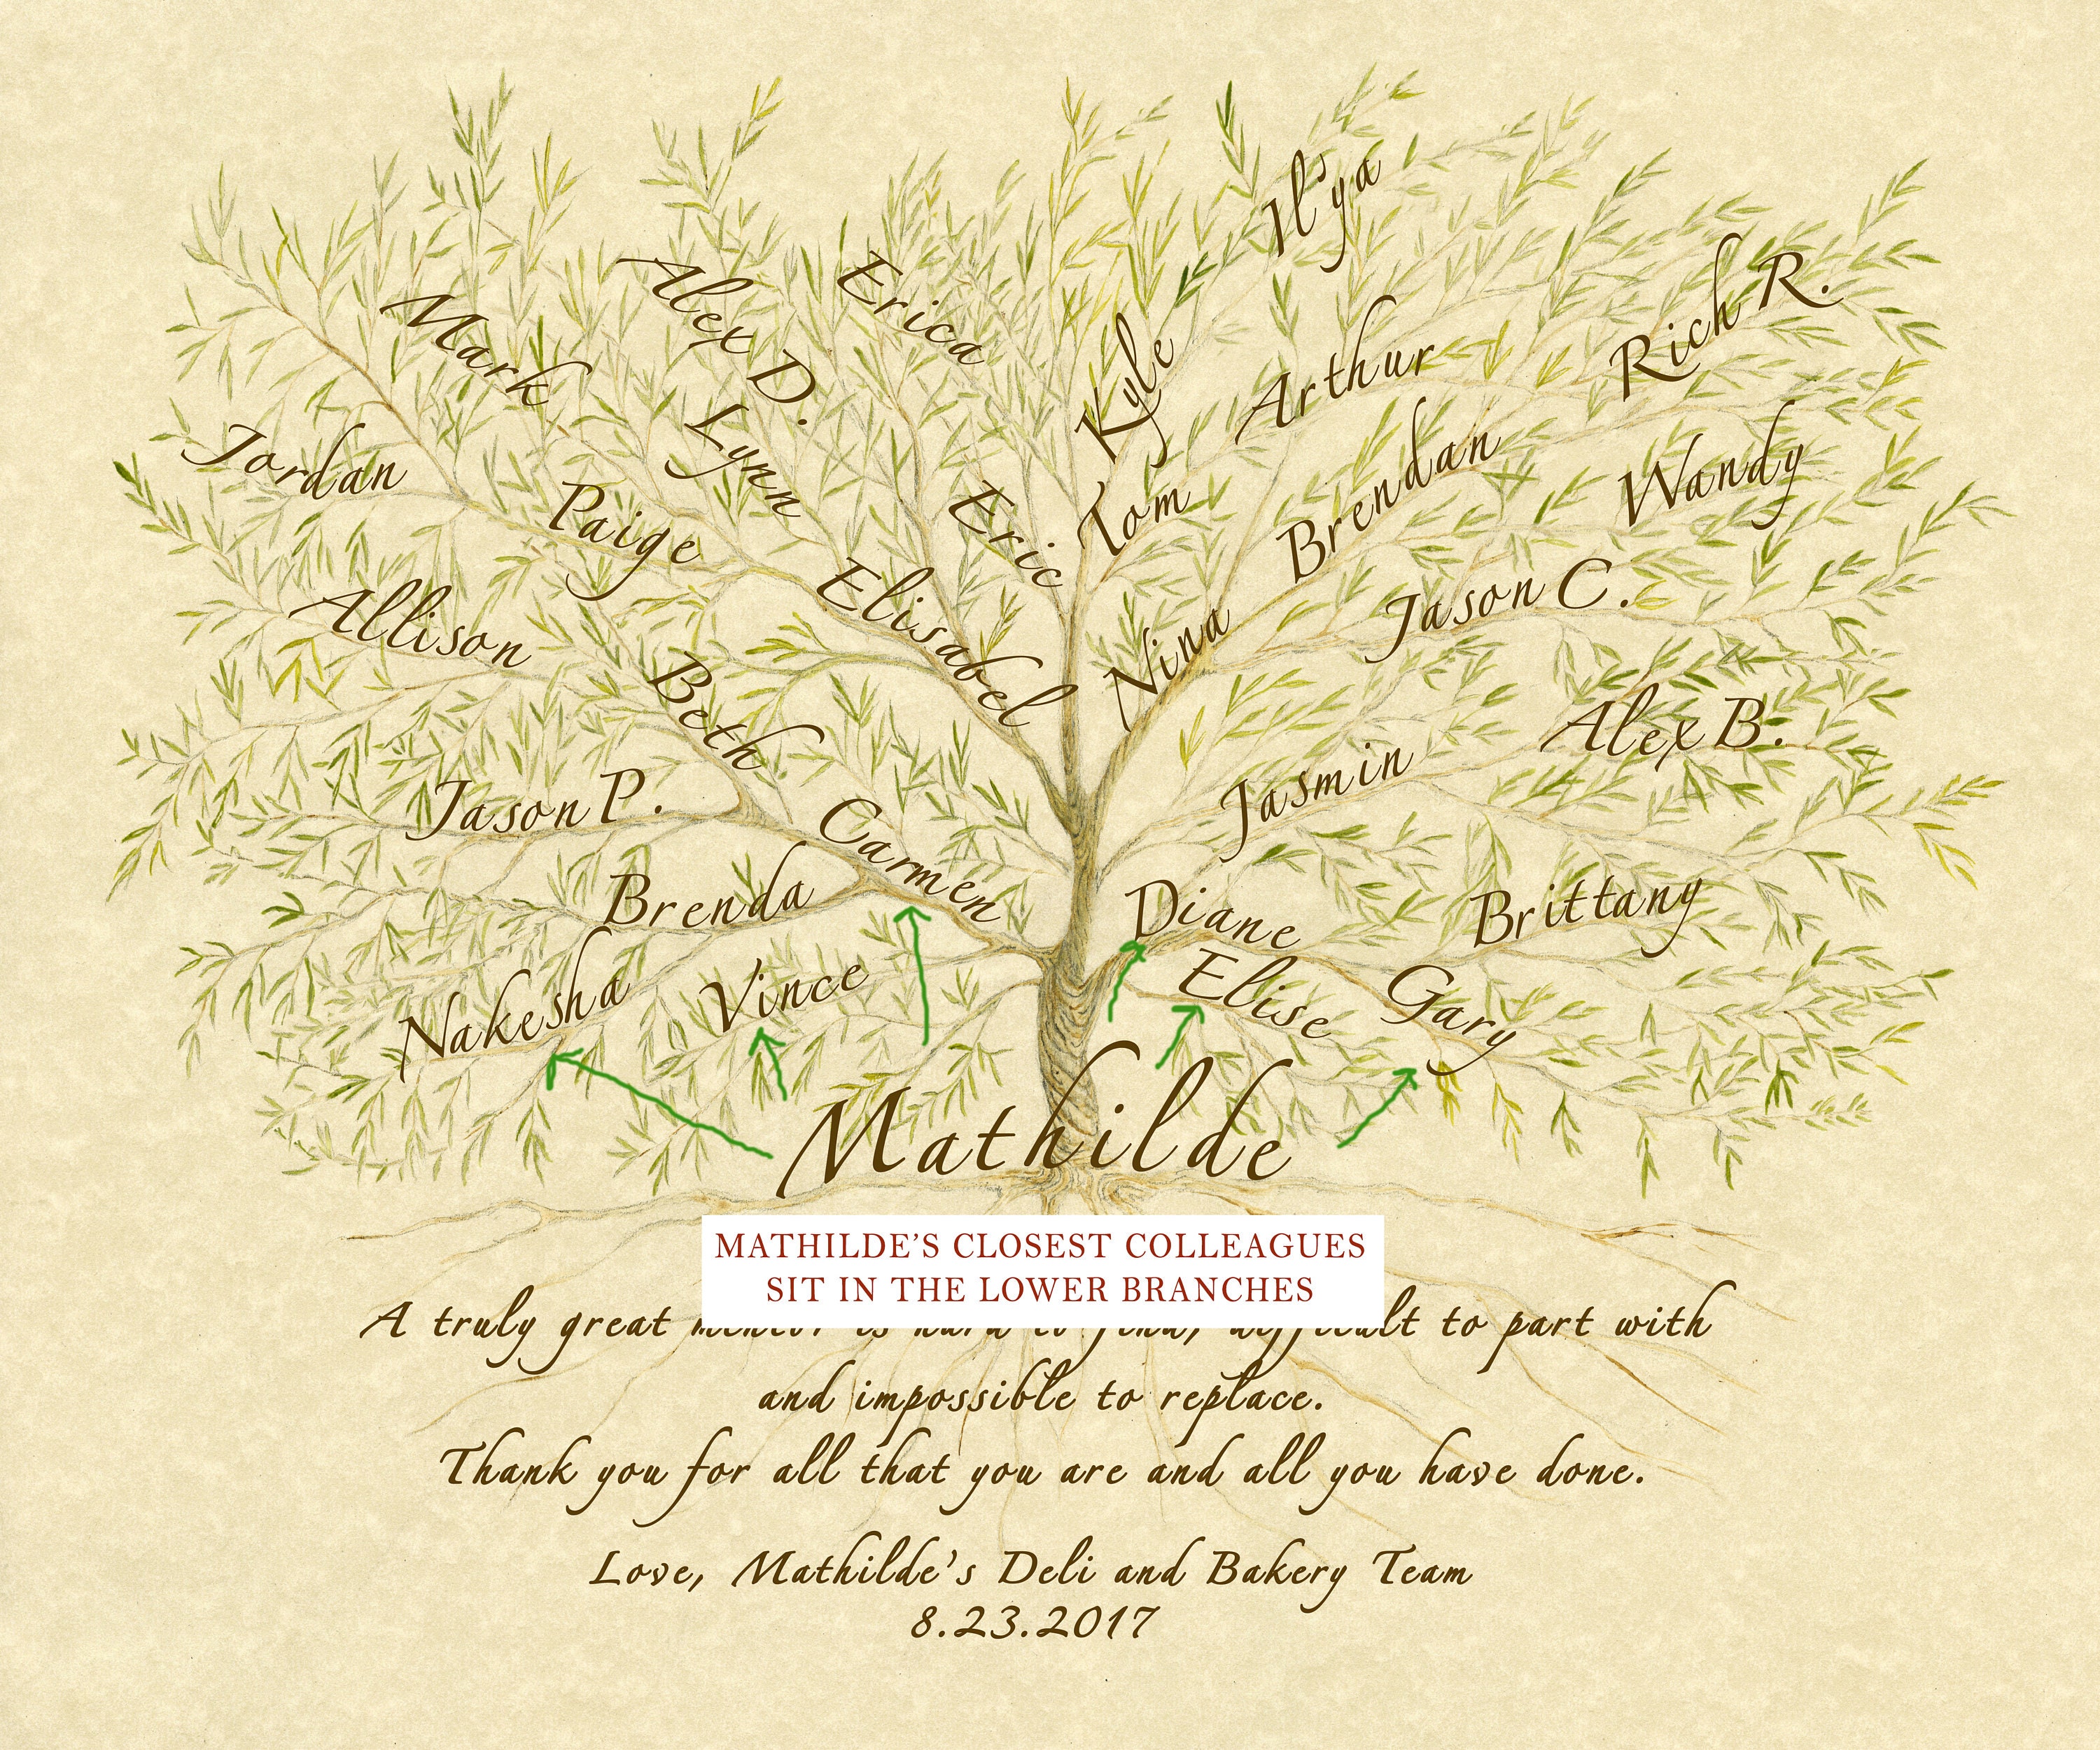 Il'ya
Erica
Alex D.
Rich R.
Mark
Kyle
Arthur
Lynn
Jordan
Brendan
Wandy
Paige
Eric
Tom
Allison
Elisabel
Jason C.
Nina
Beth
Alex B.
Jasmin
Jason P.
Carmen
Brenda
Diane
Brittany
Nakesha
Vince
Elise
Gary
Mathilde
MATHILDE'S CLOSEST COLLEAGUES
SIT IN THE LOWER BRANCHES
A truly great mentor is hard to find, difficult to part with
and impossible to replace.
Thank you for all that you are and all you have done.
Love, Mathilde's Deli and Bakery Team
8.23.2017